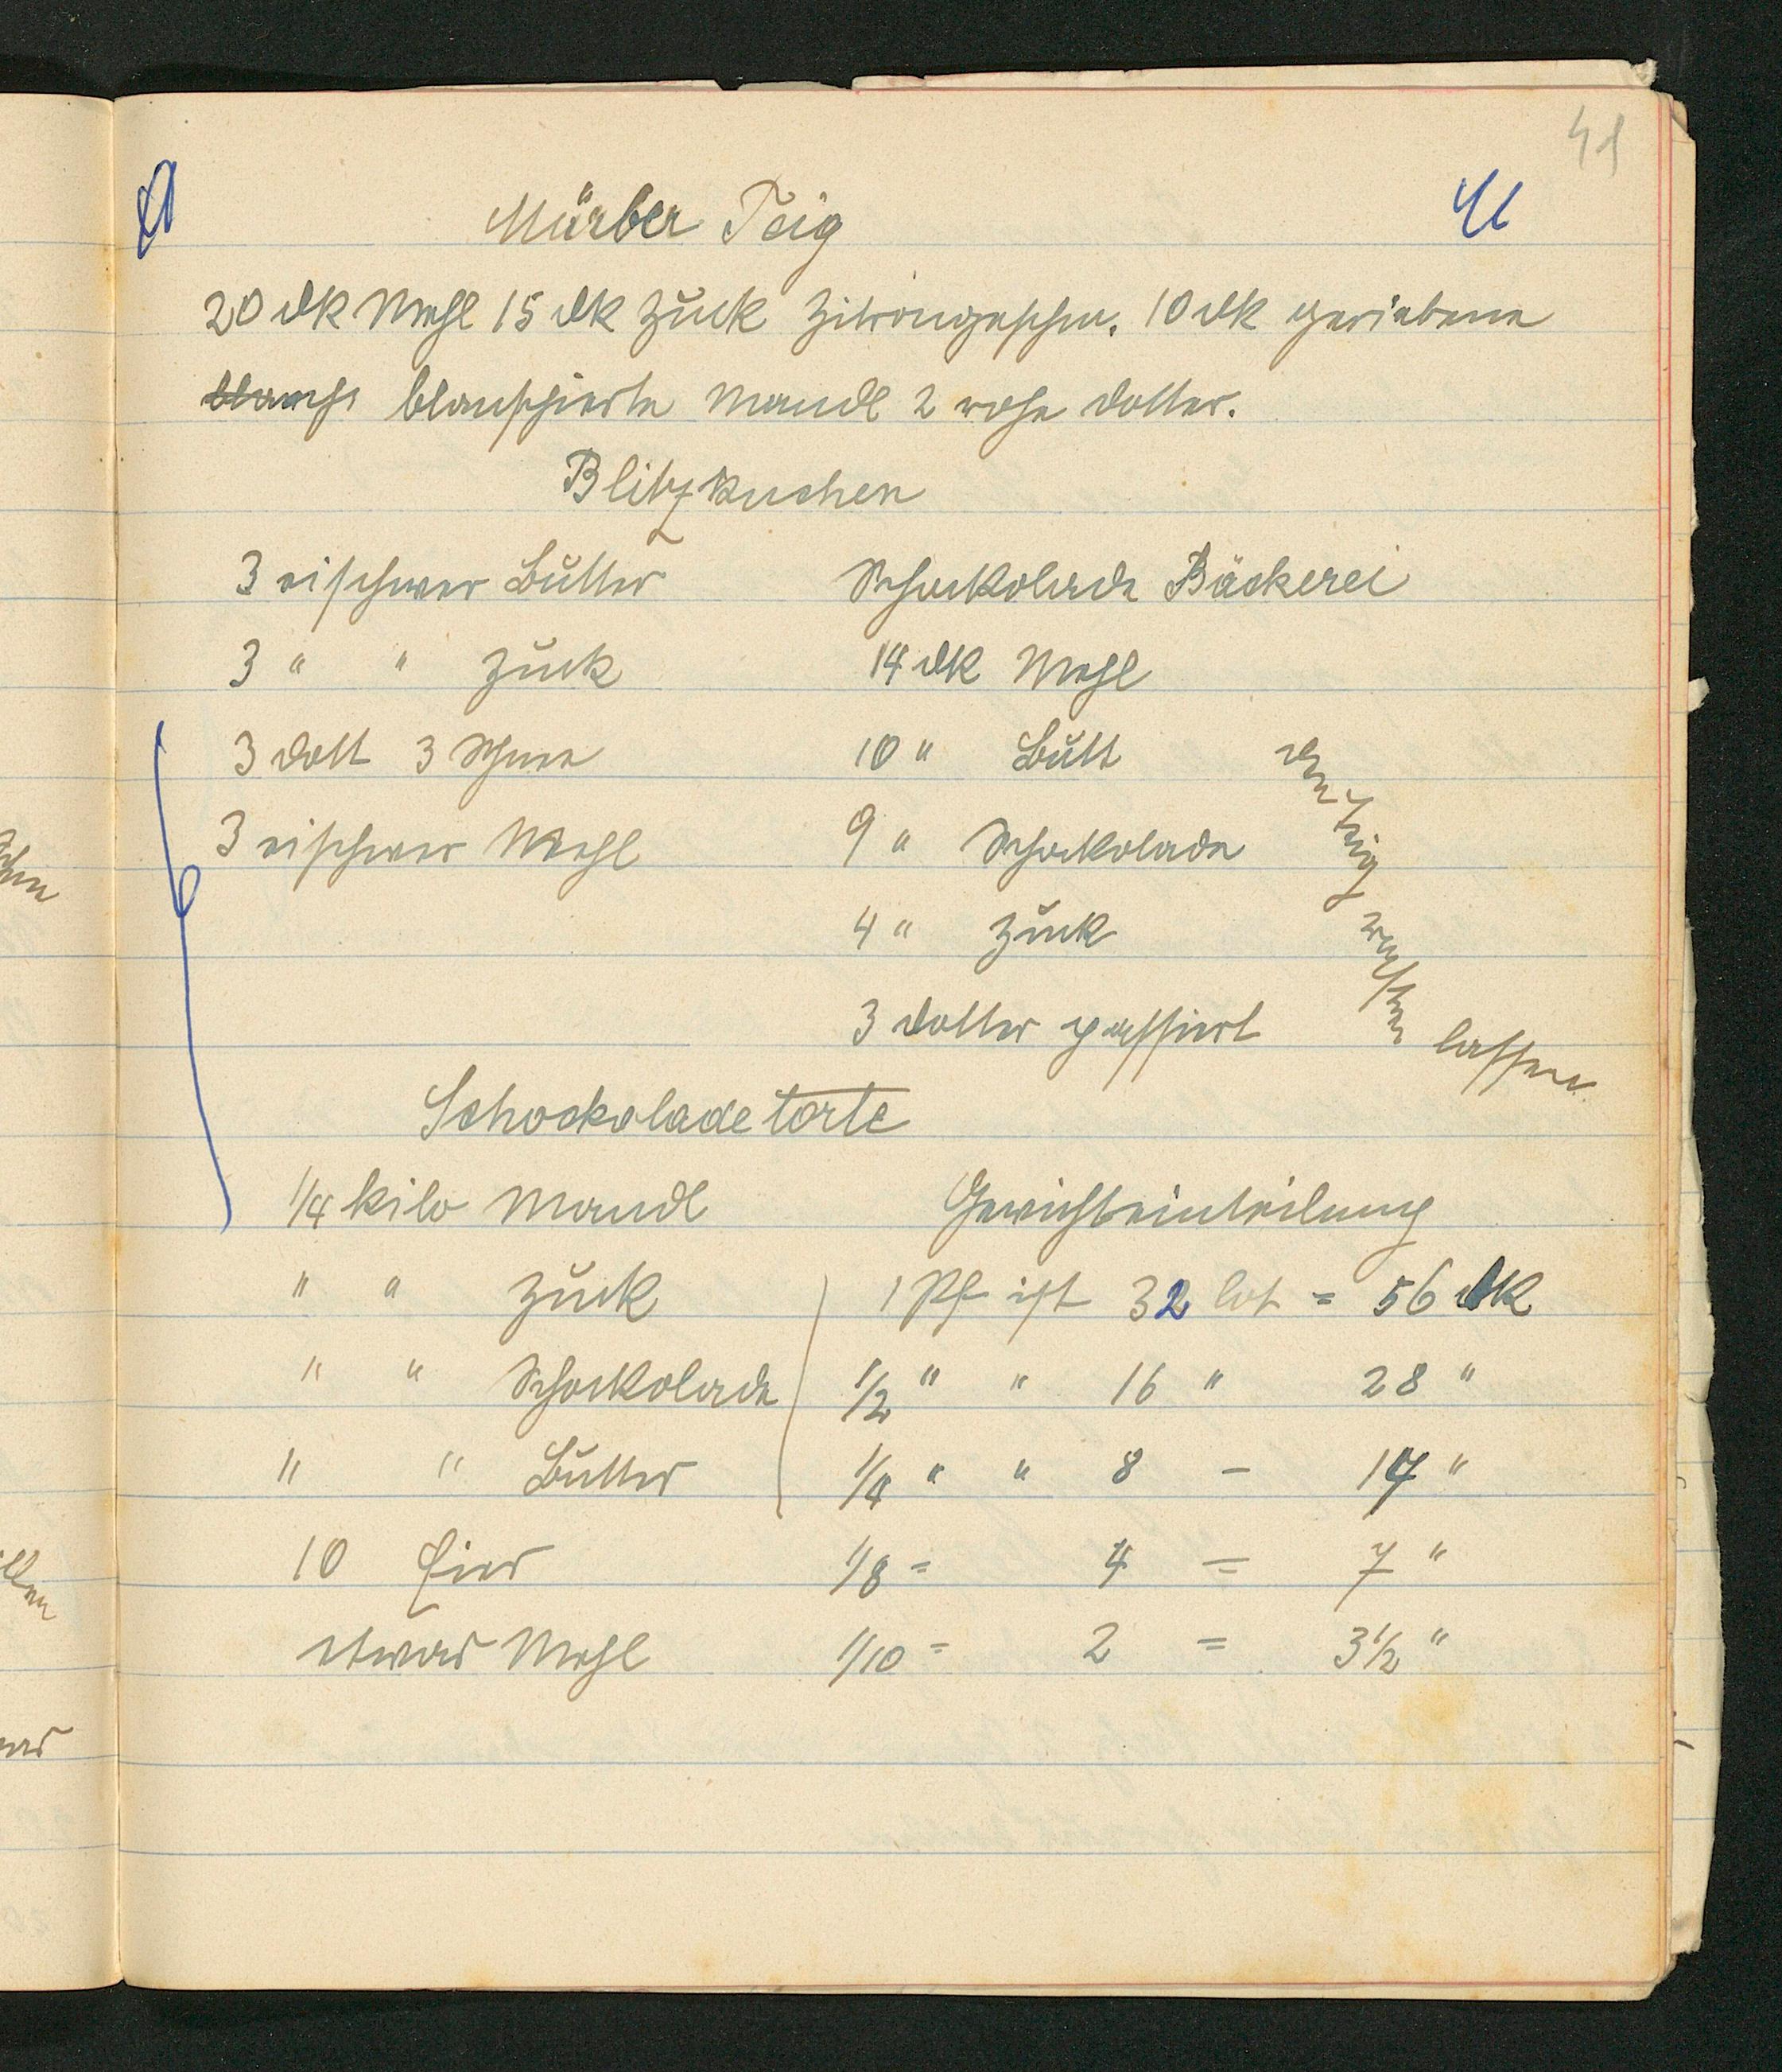 41
41
Mürber Teig
20 dk Mehl 15 dk Zuck Zitrongeschm. 10 dk geriebene
blansch blanschierte Mandl 2 rohe Dotter.
Blitzkuchen
3 eischwer Butter
3 " " Zuck
3 Dott 3 Schnee
3 eischwer Mehl
Schockolade Bäckerei
14 dk Mehl
10 " Butt
9 " Schockolade
4 " Zuck
3 Dotter passiert
den Teig rasten lassen
Schockoladetorte
1/4 kilo Mandl
" " Zuck
" " Schockolade
" " Butter
10 Eier
etwas Mehl
Gewichteinteilung
1 Pf ist 32 lot = 56 dk
1/2 " " 16 " 28 "
1/4 " " 8 – 14 "
1/8 = 4 = 7 "
1/10 = 2 = 3 1/2 "